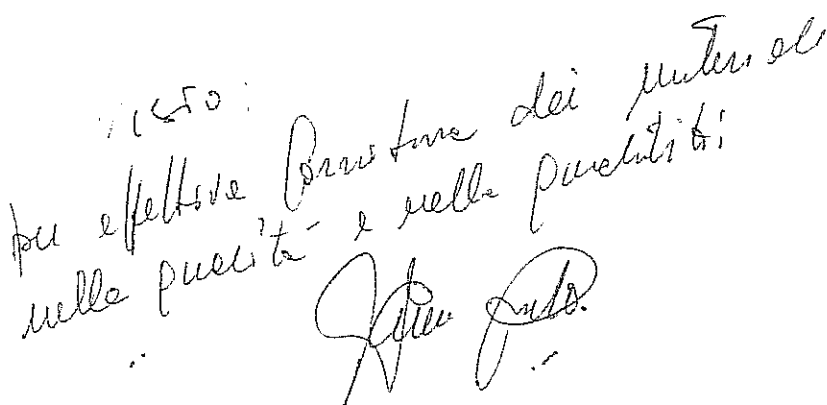 visto:
per effettiva fornitura dei materiali
nella qualità e nella quantità